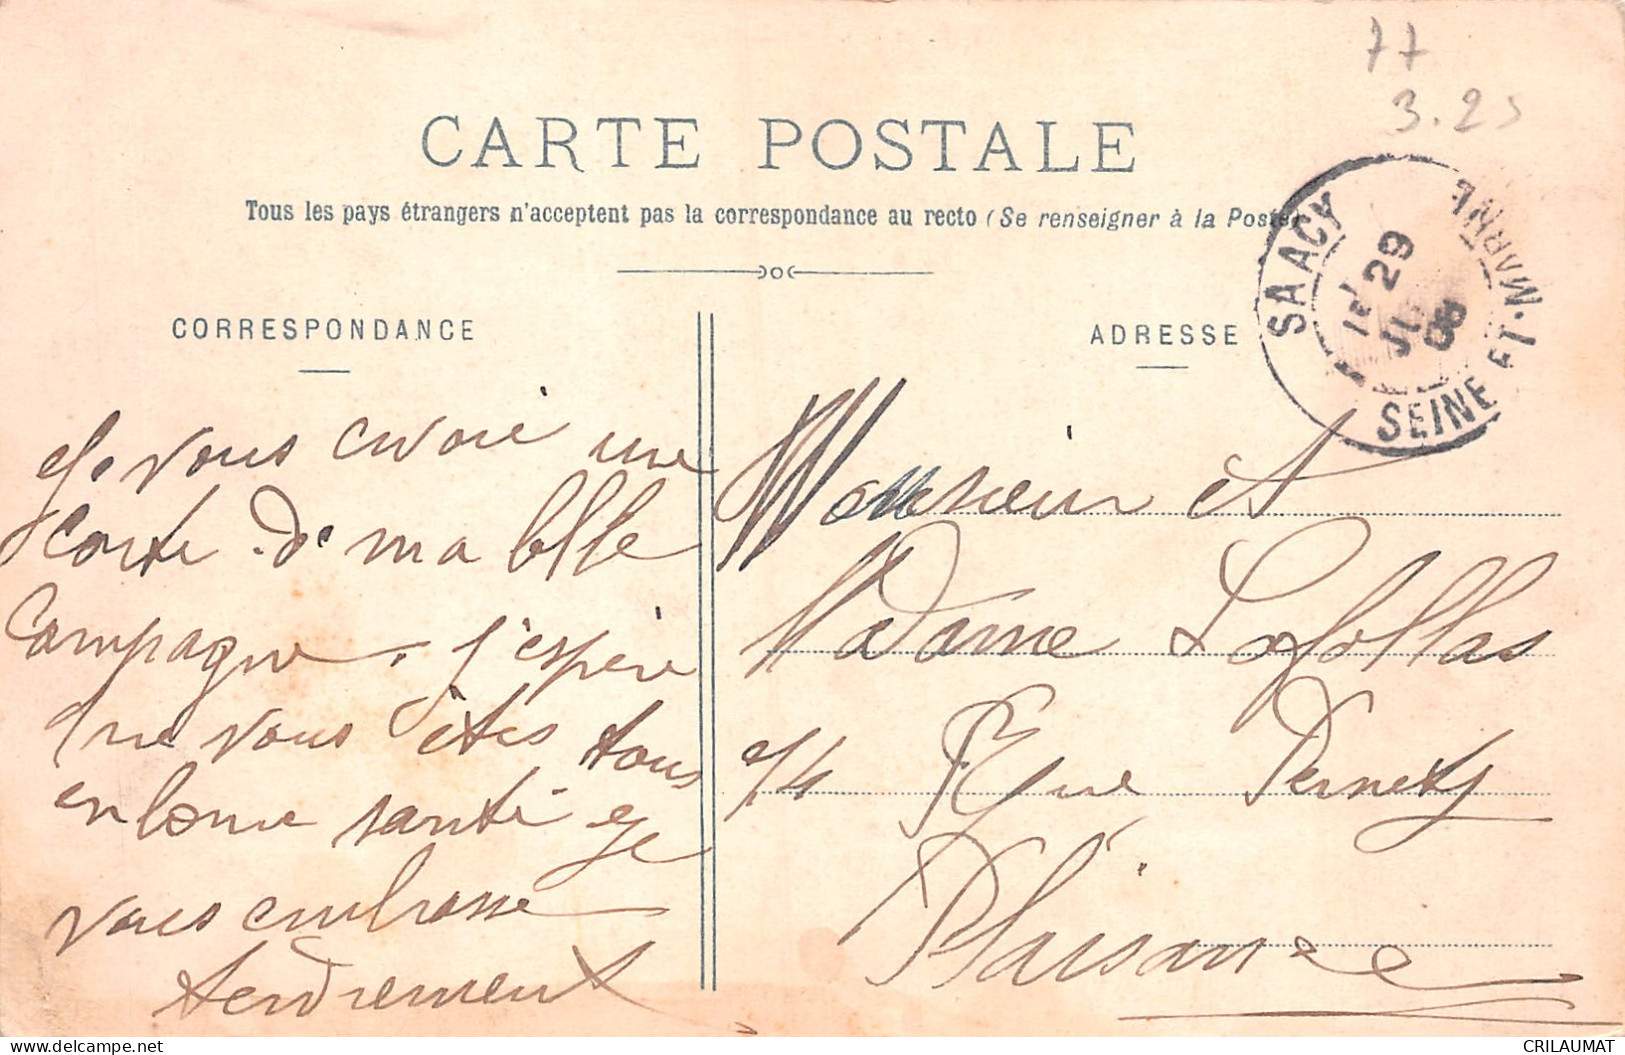 77
3.25
CARTE POSTALE
Tous les pays étrangers n'acceptent pas la correspondance au recto (Se renseigner à la Poste)
CORRESPONDANCE
Je vous envoie une
carte de ma belle
campagne. j'espère
que vous êtes tous
en bonne santé je
vous embrasse
tendrement
ADRESSE
SAACY
29
08
SEINE-ET-MARNE
Monsieur et
Madame
74 Rue Pernety
Plaisance
delcampe.net
CRILAUMAT